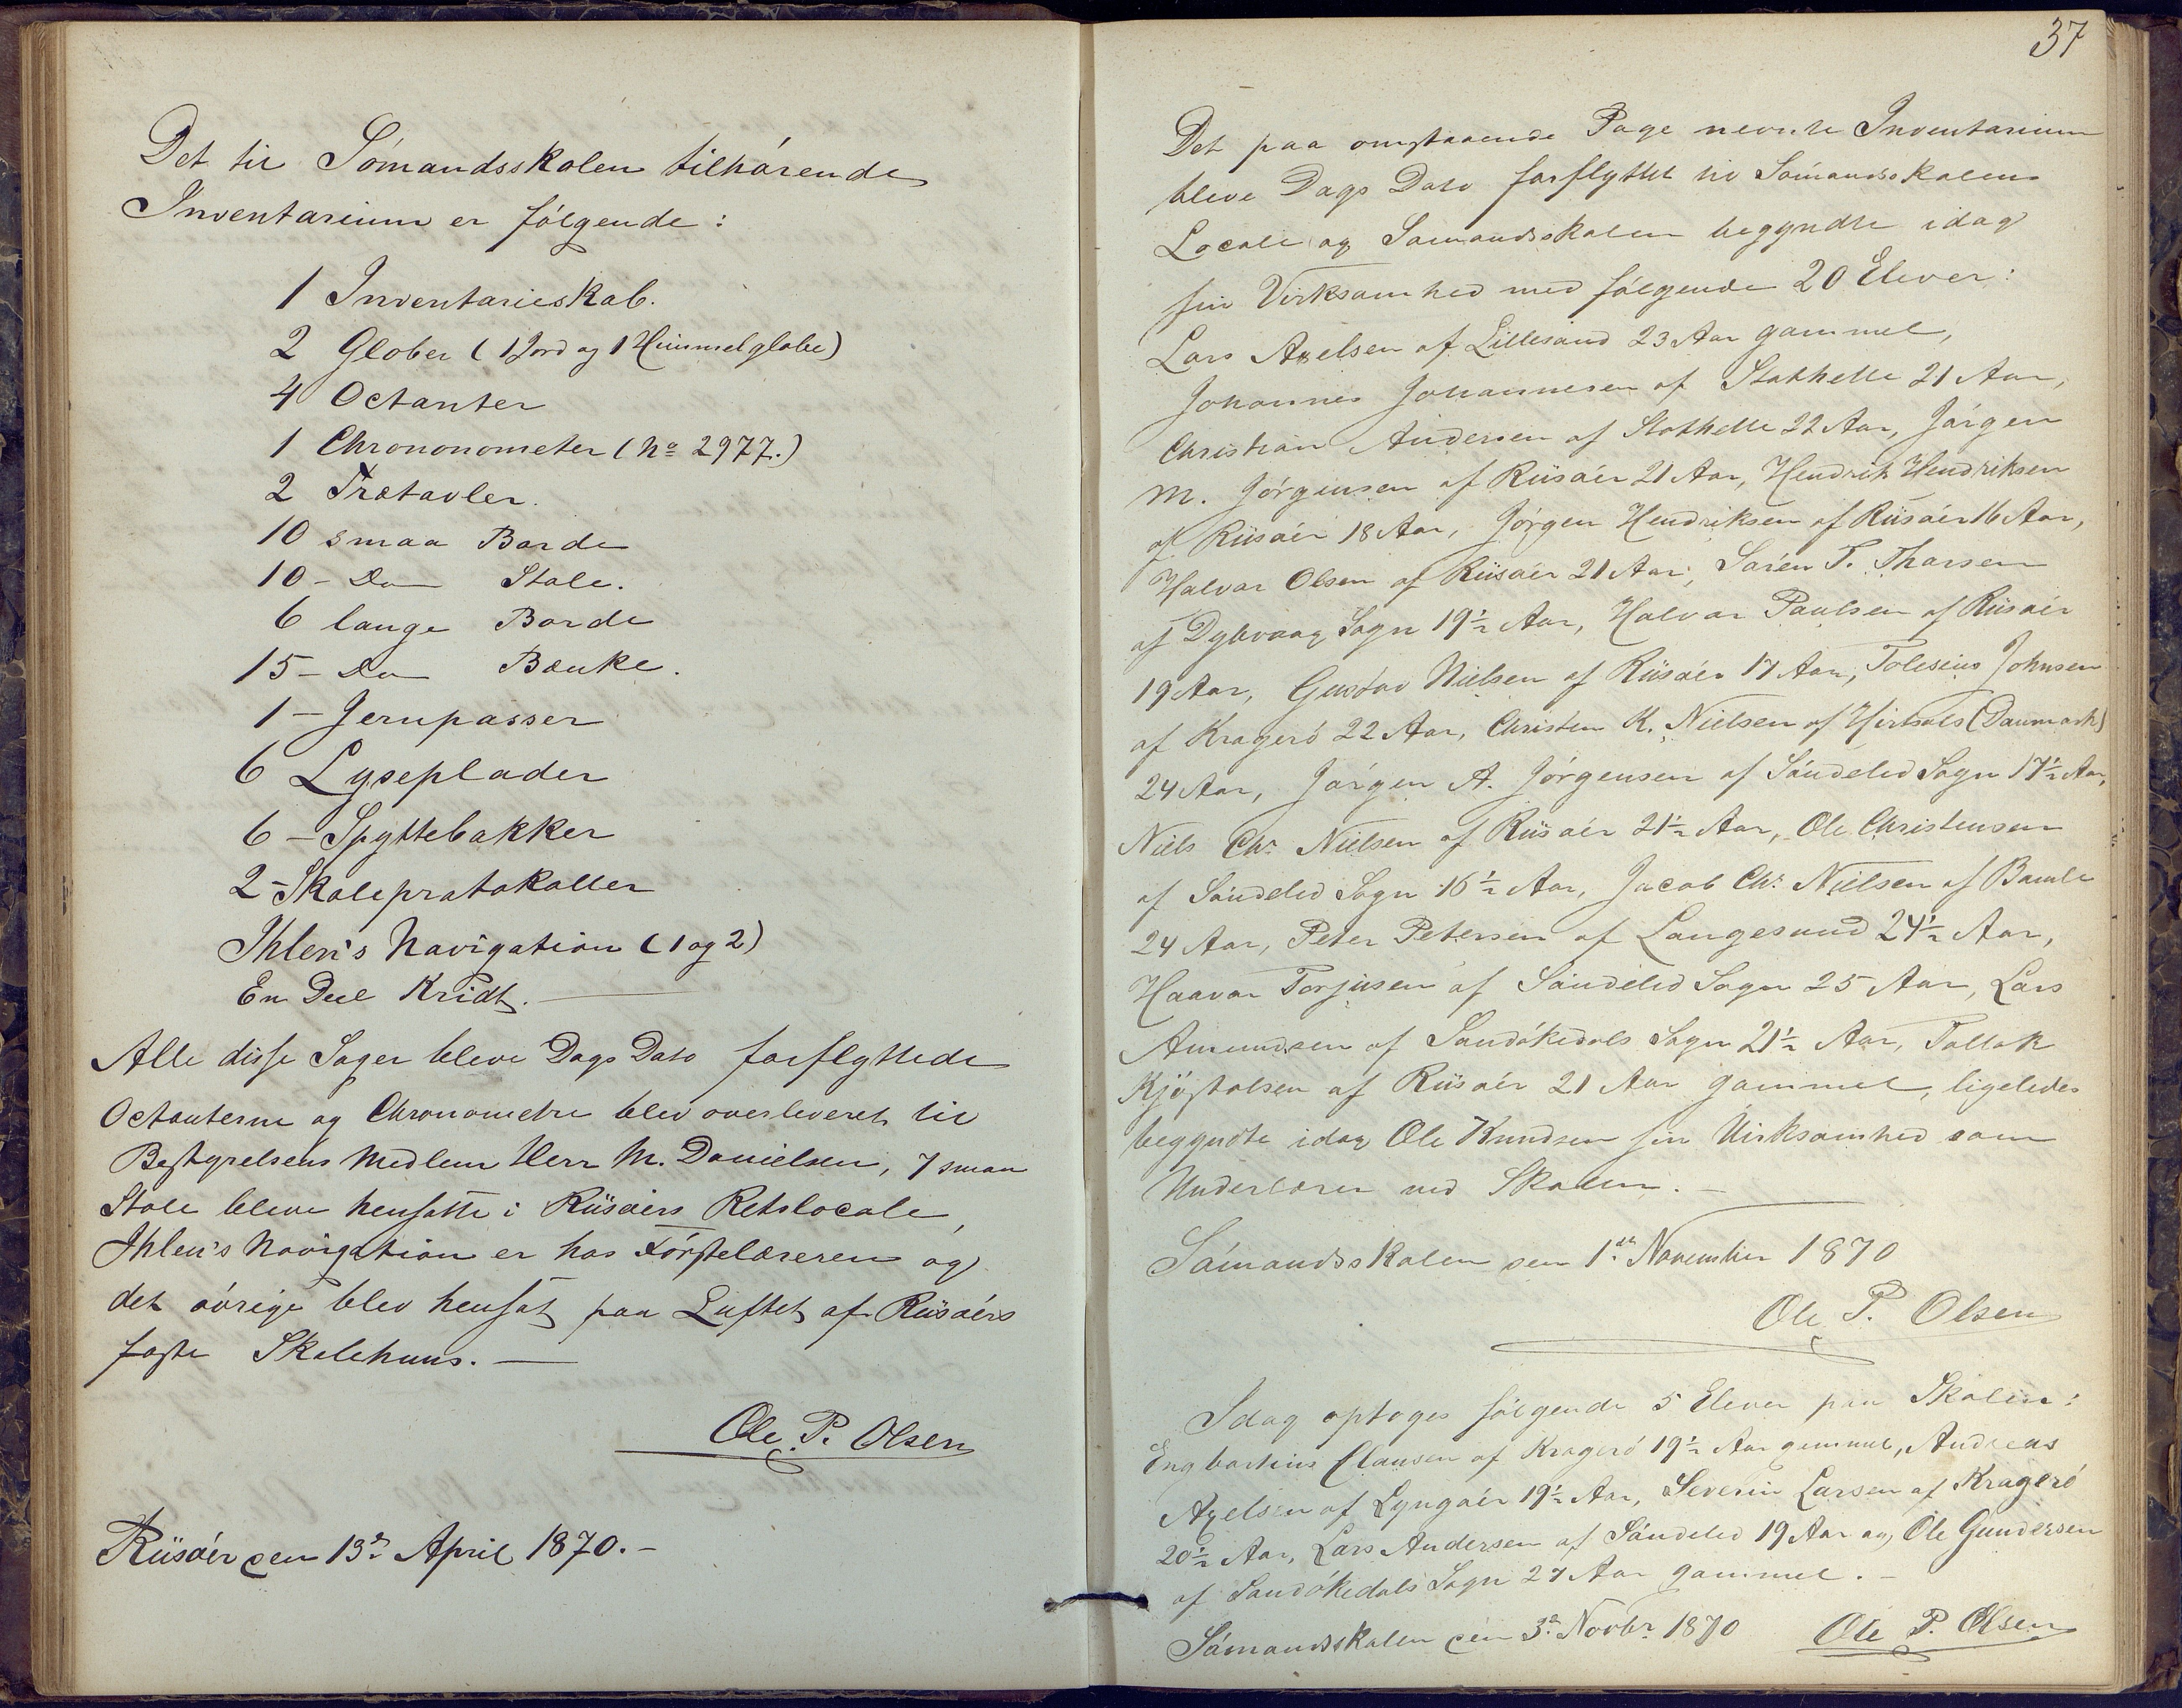 Det til Sómandsskolen tilhórende
Inventarium er fólgende:
1 Inventarieskab.
2 Glober (1 Jord og 1 Himmelglobe)
4 Octanter
1 Chrononometer (No 2977.)
2 Trætavler.
10 smaa Borde
10 - Do Stole.
6 lange Borde
15 - Do Bænke.
1 - Jernpasser
6 Lyseplader
6 - Spyttebakker
2 - Skoleprotokoller
Ihlen's Navigation (1 og 2)
En Deel Kridt.
Alle disse Sager bleve Dags Dato forflyttede
Octanterne og Chronometre blev overleveret til
Bestyrelsens Medlem Herr M. Danielsen, 7 smaa
Stole bleve hensatte i Riisóers Retslocale,
Ihlen's Navigation er hos Fórstelæreren og
det óvrige blev hensat paa Luftet af Riisóers
faste Skolehuus.
Ole P. Olsen
Riisóer den 13de April 1870.-
37
Det paa omstaaende Page nevnte Inventarium
bleve Dags Dato forflyttet til Sómandsskolens
Locale og Sómandsskolen begyndte idag
sin Virksomhed med fólgende 20 Elever:
Lars Axelsen af Lillesand 23 Aar gammel,
Johannes Johannesen af Stathelle 21 Aar,
Christian Andersen af Stathelle 22 Aar, Jórgen
M. Jórgensen af Riisóer 21 Aar, Hendrik Hendriksen
af Riisóer 18 Aar, Jórgen Hendriksen af Riisóer 16 Aar,
Halvor Olsen af Riisóer 21 Aar, Sóren T. Thorsen
af Dybvaag Sogn 19½ Aar, Halvor Paulsen af Riisóer
19 Aar, Gustav Nielsen af Riisóer 17 Aar, Tolesius Johnsen
af Krageró 22 Aar, Christen K. Nielsen af Hirtsals (Danmark)
24 Aar, Jórgen A. Jórgensen af Sóndeled Sogn 17½ Aar,
Niels Chr. Nielsen af Riisóer 21½ Aar, Ole Christensen
af Sóndeled Sogn 16½ Aar, Jacob Chr. Nielsen af Bamle
24 Aar, Peter Petersen af Langesund 24½ Aar,
Haavor Torjusen af Sóndeled Sogn 25 Aar, Lars
Amundsen af Sandókedals Sogn 21½ Aar, Tollak
Kjóstolsen af Riisóer 21 Aar gammel, ligeledes
begyndte idag Ole Knudsen sin Virksomhed som
Underlærer ved Skolen.-
Sómandsskolen den 1ste November 1870
Ole P. Olsen
Idag optoges fólgende 5 Elever paa Skolen:
Engbartius Clausen af Krageró 19½ Aar gammel, Andreas
Axelsen af Lyngóer 19½ Aar, Severin Larsen af Krageró
20½ Aar, Lars Andersen af Sóndeled 19 Aar og Ole Gundersen
af Sandókedals Sogn 27 Aar gammel.-
Sómandsskolen den 3de Novbr. 1870 Ole P. Olsen